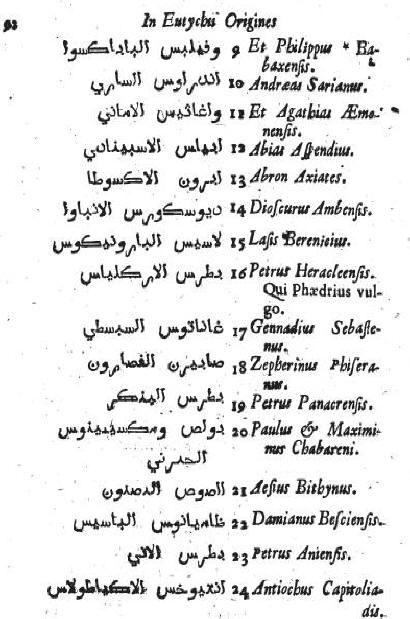 92 In Eutychii Origines
وفيلبس الباباكسوا 9 Et Philippus * Ba-
baxensis.
اندراوس الساري 10 Andræas Sarianus.
واغاثيس الاماني 11 Et Agathias Æmo-
nensis.
ابياس الاسبيناني 12 Abias Assendius.
ابرون الاكسوطا 13 Abron Axiates.
ديوسكورس الانباوا 14 Dioscurus Ambensis.
لاسيس البارونيكوس 15 Lasis Berenicius.
بطرس الاركلياس 16 Petrus Heracleensis.
Qui Phædrius vul-
go.
غاناتوس السبسطي 17 Gennadius Sebaste-
nus.
صابيرن الفصارون 18 Zepherinus Phisera-
nus.
بطرس البنكر 19 Petrus Panacrensis.
بولص ومكسيمينوس 20 Paulus & Maximi-
nus Chabareni.
الحبرني
اسوس البصنون 21 Aesius Bithynus.
ظاميانوس الباسيس 22 Damianus Besciensis.
بطرس الاني 23 Petrus Aniensis.
انتيوخس الاكباطولاس 24 Antiochus Capitolia-
dis.